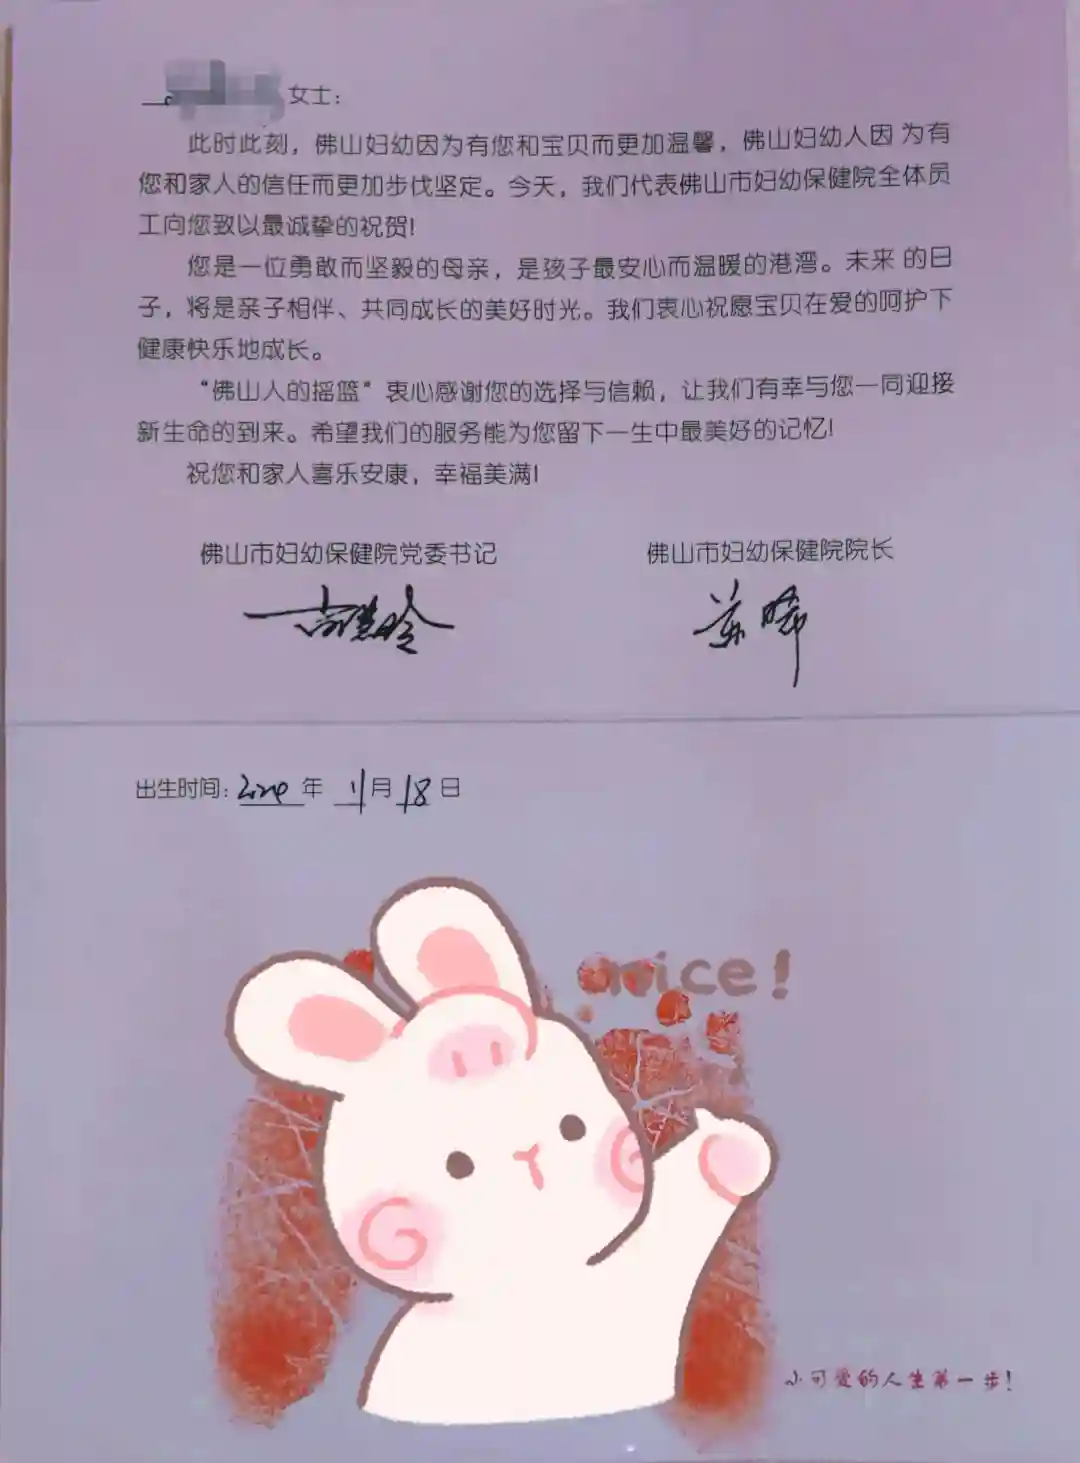 女士：
此时此刻，佛山妇幼因为有您和宝贝而更加温馨，佛山妇幼人因为有
您和家人的信任而更加步伐坚定。今天，我们代表佛山市妇幼保健院全体员
工向您致以最诚挚的祝贺！
您是一位勇敢而坚毅的母亲，是孩子最安心而温暖的港湾。未来的日
子，将是亲子相伴、共同成长的美好时光。我们衷心祝愿宝贝在爱的呵护下
健康快乐地成长。
“佛山人的摇篮”衷心感谢您的选择与信赖，让我们有幸与您一同迎接
新生命的到来。希望我们的服务能为您留下一生中最美好的记忆！
祝您和家人喜乐安康，幸福美满！
佛山市妇幼保健院党委书记
佛山市妇幼保健院院长
出生时间：年 11月18日
nice!
小可爱的人生第一步！